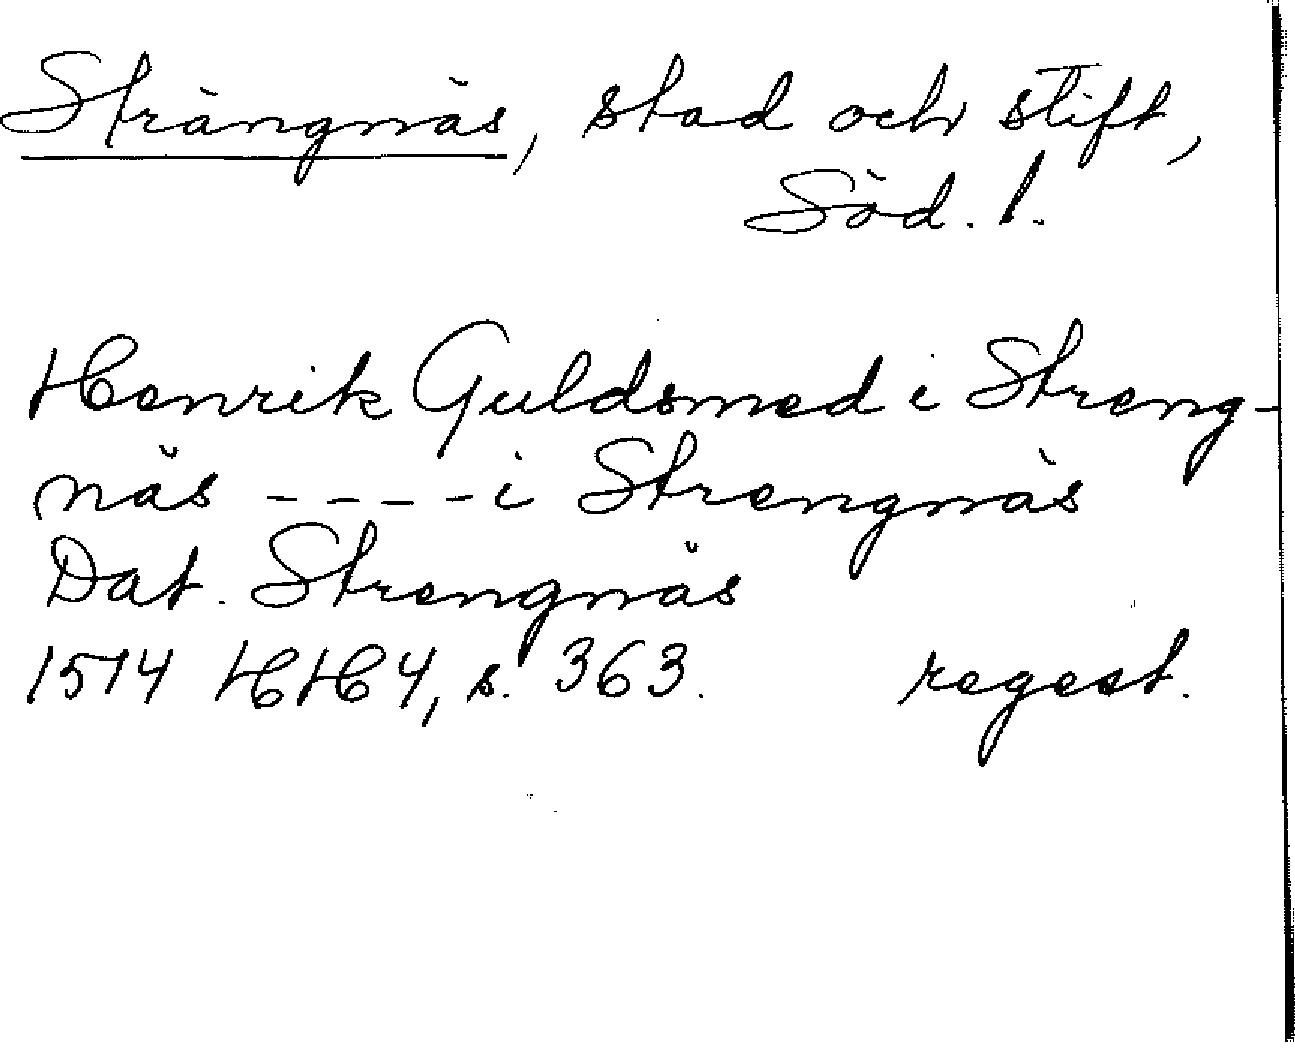 Strängnäs, stad och stift,
Söd. l.
Henrik Guldsmed i Streng-
näs ---- i Strengnäs
Dat. Strengnäs
1514 HH 4, s. 363. regest.